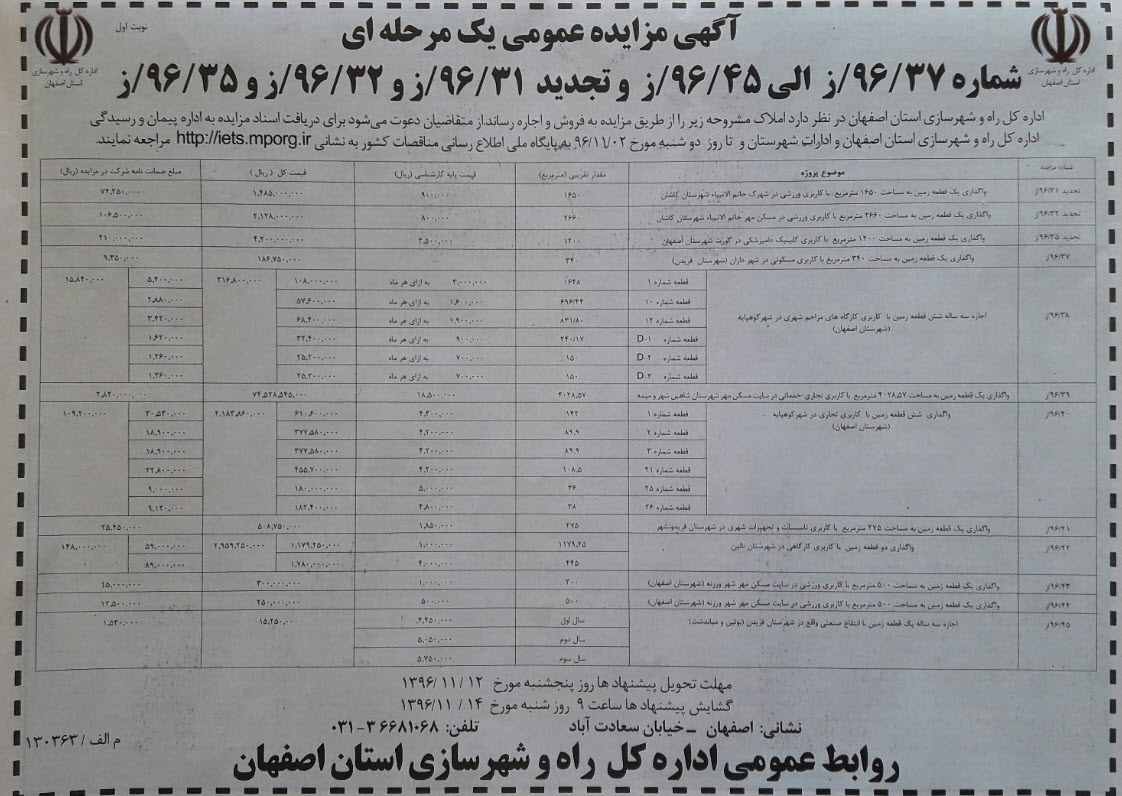 نوبت اول
آگهی مزایده عمومی یک مرحله ای
شماره ۹۶/۳۷/ز الی ۹۶/۴۵/ز و تجدید ۹۶/۳۱/ز و ۹۶/۳۲/ز و ۹۶/۳۵/ز
اداره کل راه و شهرسازی
استان اصفهان
اداره کل راه و شهرسازی
استان اصفهان
اداره کل راه و شهرسازی استان اصفهان در نظر دارد املاک مشروحه زیر را از طریق مزایده به فروش و اجاره رساند از متقاضیان دعوت می‌شود برای دریافت اسناد مزایده به اداره پیمان و رسیدگی
اداره کل راه و شهرسازی استان اصفهان و ادارات شهرستان و تا روز دو شنبه مورخ ۹۶/۱۱/۰۲ به پایگاه ملی اطلاع رسانی مناقصات کشور به نشانی http://iets.mporg.ir مراجعه نمایند.
شماره مزایده موضوع پروژه مقدار تقریبی (مترمربع) قیمت پایه کارشناسی (ریال) قیمت کل (ریال) مبلغ ضمانت نامه شرکت در مزایده (ریال)
تجدید ۹۶/۳۱/ز واگذاری یک قطعه زمین به مساحت ۱۶۵۰ مترمربع با کاربری ورزشی در شهرک خاتم الانبیاء شهرستان کاشان ۱۶۵۰ ۹۰۰.۰۰۰ ۱.۴۸۵.۰۰۰.۰۰۰ ۷۴.۲۵۰.۰۰۰
تجدید ۹۶/۳۲/ز واگذاری یک قطعه زمین به مساحت ۲۶۶۰ مترمربع با کاربری ورزشی در مسکن مهر خاتم الانبیاء شهرستان کاشان ۲۶۶۰ ۸۰۰.۰۰۰ ۲.۱۲۸.۰۰۰.۰۰۰ ۱۰۶.۵۰۰.۰۰۰
تجدید ۹۶/۳۵/ز واگذاری یک قطعه زمین به مساحت ۱۲۰۰ مترمربع با کاربری کلینیک دامپزشکی در گورت شهرستان اصفهان ۱۲۰۰ ۳.۵۰۰.۰۰۰ ۴.۲۰۰.۰۰۰.۰۰۰ ۲۱۰.۰۰۰.۰۰۰
۹۶/۳۷/ز واگذاری یک قطعه زمین به مساحت ۳۴۰ مترمربع با کاربری مسکونی در شهر داران (شهرستان فریدن) ۳۴۰ ۱۸۶.۷۵۰.۰۰۰ ۹.۳۵۰.۰۰۰
۹۶/۳۸/ز اجاره سه ساله شش قطعه زمین با کاربری کارگاه های مزاحم شهری در شهرکوهپایه
(شهرستان اصفهان)
قطعه شماره ۱ ۱۶۴۸ ۳.۰۰۰.۰۰۰ به ازای هر ماه ۱۰۸.۰۰۰.۰۰۰ ۳۱۶.۸۰۰.۰۰۰ ۵.۴۰۰.۰۰۰ ۱۵.۸۴۰.۰۰۰
قطعه شماره ۱۰ ۶۹۶/۴۴ ۱.۶۰۰.۰۰۰ به ازای هر ماه ۵۷.۶۰۰.۰۰۰ ۲.۸۸۰.۰۰۰
قطعه شماره ۱۲ ۸۳۱/۸۰ ۱.۹۰۰.۰۰۰ به ازای هر ماه ۶۸.۴۰۰.۰۰۰ ۳.۴۲۰.۰۰۰
قطعه شماره D-۱ ۲۴۰/۱۷ ۹۰۰.۰۰۰ به ازای هر ماه ۳۲.۴۰۰.۰۰۰ ۱.۶۲۰.۰۰۰
قطعه شماره D-۲ ۱۵۰ ۷۰۰.۰۰۰ به ازای هر ماه ۲۵.۲۰۰.۰۰۰ ۱.۲۶۰.۰۰۰
قطعه شماره D-۳ ۱۵۰ ۷۰۰.۰۰۰ به ازای هر ماه ۲۵.۲۰۰.۰۰۰ ۱.۲۶۰.۰۰۰
۹۶/۳۹/ز واگذاری یک قطعه زمین به مساحت ۴۰۲۸.۵۷ مترمربع با کاربری تجاری-خدماتی در سایت مسکن مهر شهرستان شاهین شهر و میمه ۴۰۲۸.۵۷ ۱۸.۵۰۰.۰۰۰ ۷۴.۵۲۸.۵۴۵.۰۰۰ ۲.۸۲۰.۰۰۰.۰۰۰
۹۶/۴۰/ز واگذاری شش قطعه زمین با کاربری تجاری در شهرکوهپایه
(شهرستان اصفهان)
قطعه شماره ۱ ۱۴۲ ۴.۳۰۰.۰۰۰ ۶۱۰.۶۰۰.۰۰۰ ۲.۱۸۳.۸۶۰.۰۰۰ ۳۰.۵۳۰.۰۰۰ ۱۰۹.۲۰۰.۰۰۰
قطعه شماره ۲ ۸۹.۹ ۴.۲۰۰.۰۰۰ ۳۷۷.۵۸۰.۰۰۰ ۱۸.۹۰۰.۰۰۰
قطعه شماره ۳ ۸۹.۹ ۴.۲۰۰.۰۰۰ ۳۷۷.۵۸۰.۰۰۰ ۱۸.۹۰۰.۰۰۰
قطعه شماره ۲۱ ۱۰۸.۵ ۴.۲۰۰.۰۰۰ ۴۵۵.۷۰۰.۰۰۰ ۲۲.۸۰۰.۰۰۰
قطعه شماره ۲۵ ۳۶ ۵.۰۰۰.۰۰۰ ۱۸۰.۰۰۰.۰۰۰ ۹.۰۰۰.۰۰۰
قطعه شماره ۲۶ ۳۸ ۴.۸۰۰.۰۰۰ ۱۸۲.۴۰۰.۰۰۰ ۹.۱۲۰.۰۰۰
۹۶/۴۱/ز واگذاری یک قطعه زمین به مساحت ۲۷۵ مترمربع با کاربری تاسیسات و تجهیزات شهری در شهرستان فریدونشهر ۲۷۵ ۱.۸۵۰.۰۰۰ ۵۰۸.۷۵۰.۰۰۰ ۲۵.۴۵۰.۰۰۰
۹۶/۴۲/ز واگذاری دو قطعه زمین با کاربری کارگاهی در شهرستان نائین ۱۱۷۹.۲۵ ۱.۰۰۰.۰۰۰ ۱.۱۷۹.۲۵۰.۰۰۰ ۲.۹۵۹.۲۵۰.۰۰۰ ۵۹.۰۰۰.۰۰۰ ۱۴۸.۰۰۰.۰۰۰
۴۴۵ ۴.۰۰۰.۰۰۰ ۱.۷۸۰.۰۰۰.۰۰۰ ۸۹.۰۰۰.۰۰۰
۹۶/۴۳/ز واگذاری یک قطعه زمین به مساحت ۵۰۰ مترمربع با کاربری ورزشی در سایت مسکن مهر شهر ورزنه (شهرستان اصفهان) ۳۰۰ ۱.۰۰۰.۰۰۰ ۳۰۰.۰۰۰.۰۰۰ ۱۵.۰۰۰.۰۰۰
۹۶/۴۴/ز واگذاری یک قطعه زمین به مساحت ۵۰۰ مترمربع با کاربری ورزشی در سایت مسکن مهر شهر ورزنه (شهرستان اصفهان) ۵۰۰ ۵۰۰.۰۰۰ ۲۵۰.۰۰۰.۰۰۰ ۱۲.۵۰۰.۰۰۰
۹۶/۴۵/ز اجاره سه ساله یک قطعه زمین با انتفاع صنعتی واقع در شهرستان فریدن (بوئین و میاندشت) سال اول ۴.۴۵۰.۰۰۰ ۱۵.۲۵۰.۰۰۰ ۱.۵۳۰.۰۰۰
سال دوم ۵.۰۵۰.۰۰۰
سال سوم ۵.۷۵۰.۰۰۰
مهلت تحویل پیشنهاد ها روز پنجشنبه مورخ ۱۳۹۶/۱۱/۱۲
گشایش پیشنهاد ها ساعت ۹ روز شنبه مورخ ۱۳۹۶/۱۱/۱۴
نشانی: اصفهان – خیابان سعادت آباد تلفن: ۳۶۶۸۱۰۶۸-۰۳۱
روابط عمومی اداره کل راه و شهرسازی استان اصفهان
م الف / ۱۳۰۳۶۳